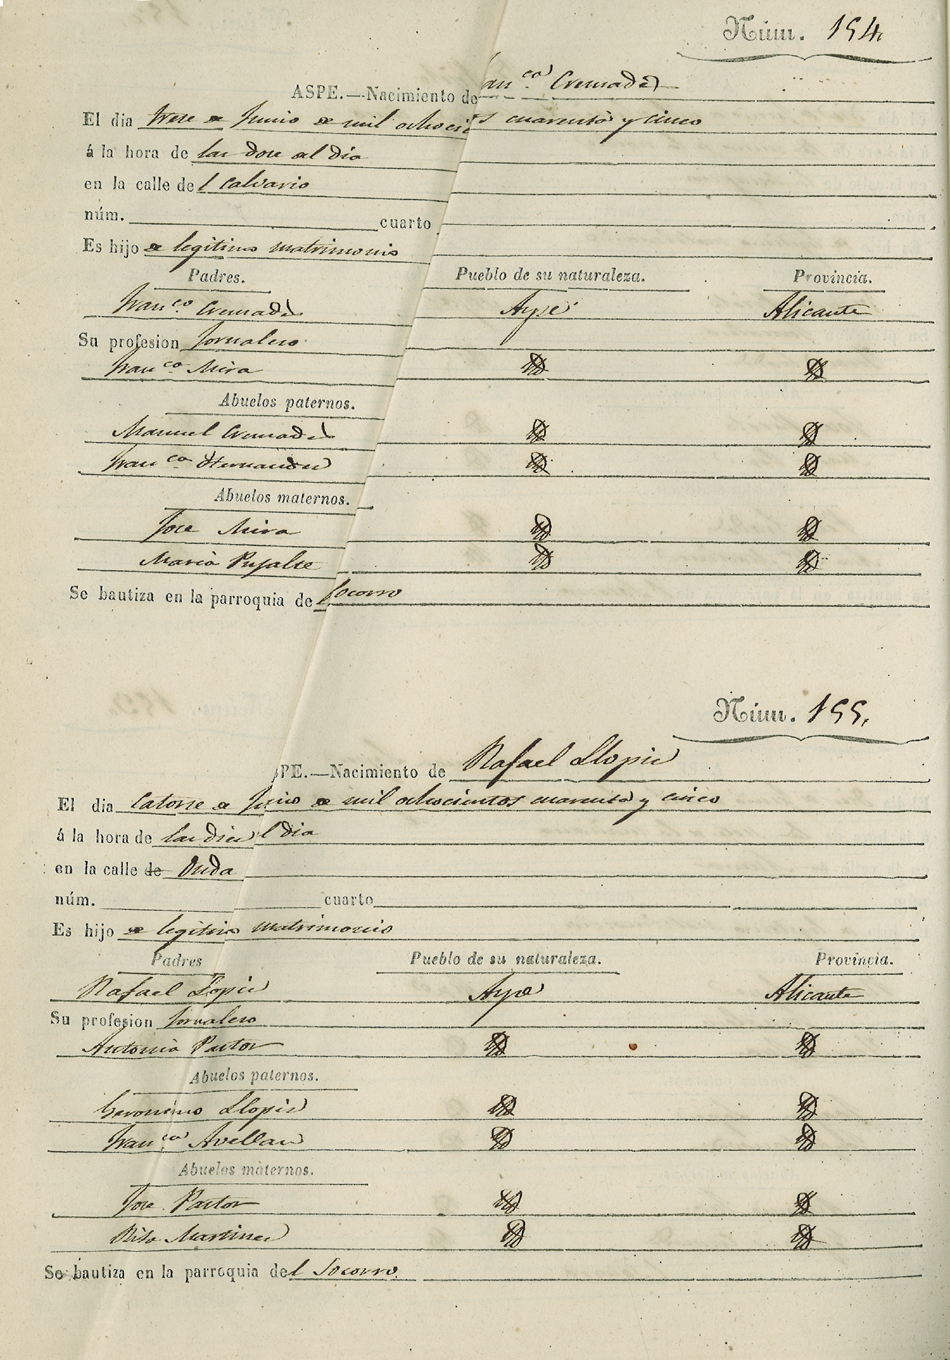 Núm. 154.
ASPE.—Nacimiento de an.co Cremades
El dia trese de Junio de mil ochoci s cuarenta y cinco
á la hora de las dose al dia
en la calle del Calvario
núm. cuarto
Es hijo de legitimo matrimonio
Padres. Pueblo de su naturaleza. Provincia.
Fran.co Cremades Aspe Alicante
Su profesion Jornalero
Fran.ca Mira
Abuelos paternos.
Manuel Cremades
Fran.ca Hernandes
Abuelos maternos.
Jose Mira
Maria Pujalte
Se bautiza en la parroquia del Socorro
Núm. 155.
PE.—Nacimiento de Rafael Llopis
El dia catorse de Junio de mil ochocientos cuarenta y cinco
á la hora de las dies l dia
en la calle de Onda
núm. cuarto
Es hijo de legitimo matrimonio
Padres Pueblo de su naturaleza. Provincia.
Rafael Llopis Aspe Alicante
Su profesion Jornalero
Antonia Pastor
Abuelos paternos.
Geronimo Llopis
Fran.ca Avellan
Abuelos maternos.
Jose Pastor
Rita Martines
Se bautiza en la parroquia del Socorro